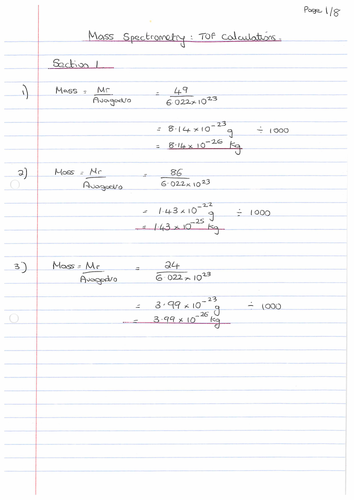 Page 1/8
Mass Spectrometry : TOF Calculations.
Section 1
1) Mass = Mr / Avogadro = 49 / 6.022 x 10^23
= 8.14 x 10^-23 g ÷ 1000
= 8.14 x 10^-26 kg
2) Mass = Mr / Avogadro = 86 / 6.022 x 10^23
= 1.43 x 10^-22 g ÷ 1000
= 1.43 x 10^-25 kg
3) Mass = Mr / Avogadro = 24 / 6.022 x 10^23
= 3.99 x 10^-23 g ÷ 1000
= 3.99 x 10^-26 kg